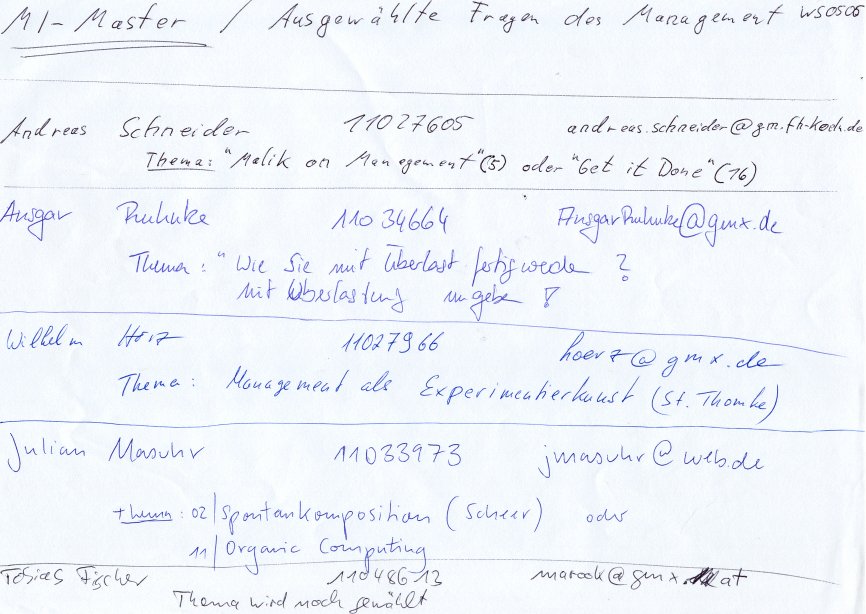 MI-Master / Ausgewählte Fragen des Management WS0506
Andreas Schneider 11027605 andreas.schneider@gm.fh-koeln.de
Thema: "Malik on Management" (5) oder "Get it Done" (16)
Ansgar Ruhnke 11034664 AnsgarRuhnke@gmx.de
Thema: "Wie Sie mit Überlast fertig werde ?
mit Überlastung umgebe !
Wilhelm Hörz 11027966 hoerz@gmx.de
Thema: Management als Experimentierkunst (St. Thomke)
Julian Masuhr 11033973 jmasuhr@web.de
Thema: 02 | Spontankomposition (Scheer) oder
11 | Organic Computing
Tobias Fischer 11048613 marook@gmx.at
Thema wird noch gewählt